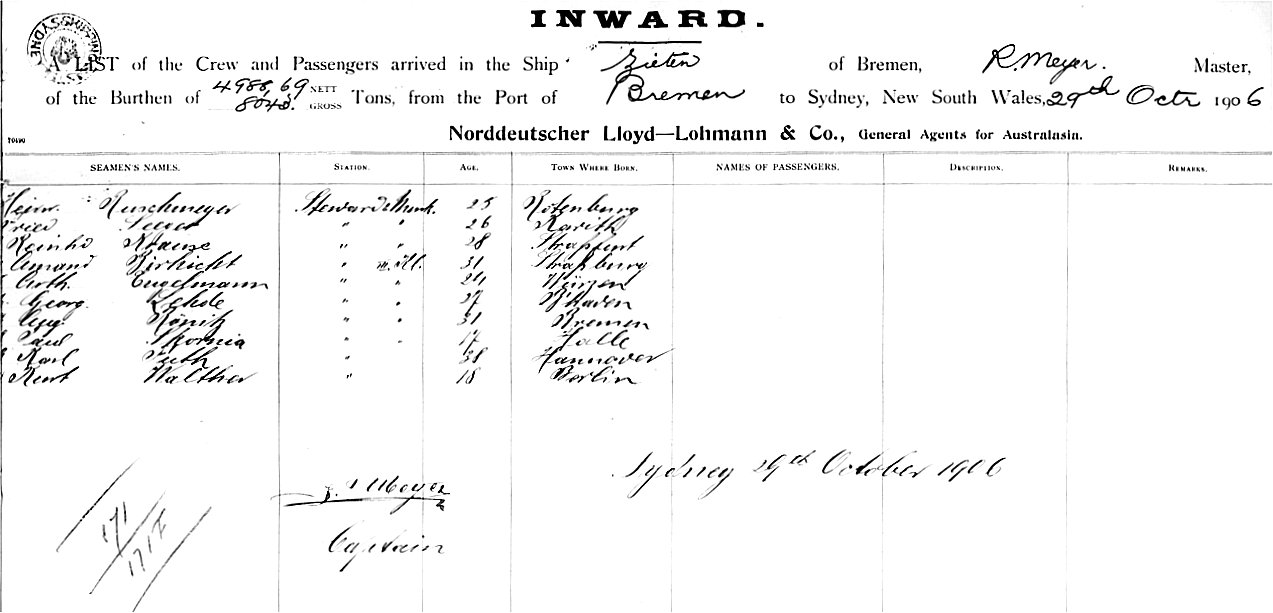 INWARD.
A LIST of the Crew and Passengers arrived in the Ship Zieten of Bremen, R. Meyer. Master,
of the Burthen of 4988,69 NETT 8043. GROSS Tons, from the Port of Bremen to Sydney, New South Wales, 29th Octr 1906
Norddeutscher Lloyd—Lohmann & Co., General Agents for Australasia.
SEAMEN'S NAMES. STATION. AGE. TOWN WHERE BORN. NAMES OF PASSENGERS. DESCRIPTION. REMARKS.
Heinr. Ruschmeyer Steward 25 Rotenburg
Fried " " 26
Reinhd Krause " " 28
Amand Birkicht " 31 Straßburg
Arth. Engelmann " " 24 Würzen
Georg. Rehde " " 27
Aug. König " " 31 Bremen
Paul " " 17 Halle
Karl Futh " 38 Hannover
Kurt Walther " 18 Berlin
Sydney 29th October 1906
Meyer
Captain
171
1712